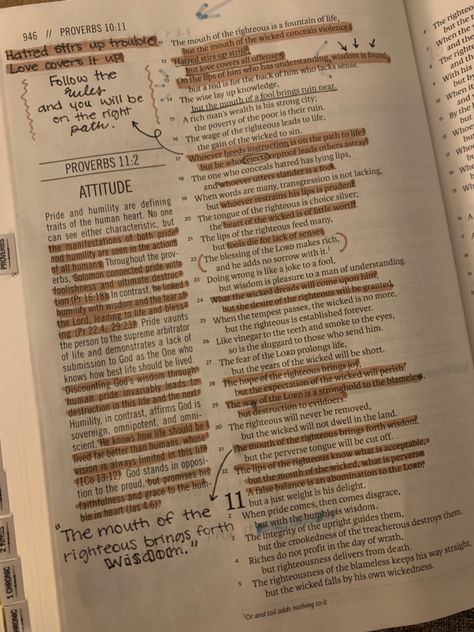 946 // PROVERBS 10:11
Hatred stirs up trouble,
Love covers it up!
Follow the
rules
and you will be
on the right
path.
PROVERBS 11:2
ATTITUDE
Pride and humility are defining
traits of the human heart. No one
can see either characteristic, but
the manifestations of both pride
and humility are seen in the actions
of all humans. Throughout the prov-
erbs, Solomon connected pride with
foolishness and ultimate destruc-
tion (Pr 16:18). In contrast, he linked
humility with wisdom and the fear of
the Lord, leading to life and bless-
ing (Pr 22:4; 29:23). Pride vaunts
the person to the supreme arbitrator
of life and demonstrates a lack of
submission to God as the One who
knows how best life should be lived.
Discounting God's wisdom through
human pride invariably leads to
destruction in this life and the next.
Humility, in contrast, affirms God is
sovereign, omnipotent, and omni-
scient. He knows how life should be
lived far better than humans, whose
vision is always limited in this life
(1Co 13:12). God stands in opposi-
tion to the proud, but promises his
faithfulness and grace to the hum-
ble in heart (Jas 4:6).
"The mouth of the
righteous brings forth
wisdom."
11 The mouth of the righteous is a fountain of life,
but the mouth of the wicked conceals violence.
12 Hatred stirs up strife,
but love covers all offenses.
13 On the lips of him who has understanding, wisdom is found,
but a rod is for the back of him who lacks sense.
14 The wise lay up knowledge,
but the mouth of a fool brings ruin near.
15 A rich man's wealth is his strong city;
the poverty of the poor is their ruin.
16 The wage of the righteous leads to life,
the gain of the wicked to sin.
17 Whoever heeds instruction is on the path to life,
but he who rejects reproof leads others astray.
18 The one who conceals hatred has lying lips,
and whoever utters slander is a fool.
19 When words are many, transgression is not lacking,
but whoever restrains his lips is prudent.
20 The tongue of the righteous is choice silver;
the heart of the wicked is of little worth.
21 The lips of the righteous feed many,
but fools die for lack of sense.
22 The blessing of the LORD makes rich,
and he adds no sorrow with it.
23 Doing wrong is like a joke to a fool,
but wisdom is pleasure to a man of understanding.
24 What the wicked dreads will come upon him,
but the desire of the righteous will be granted.
25 When the tempest passes, the wicked is no more,
but the righteous is established forever.
26 Like vinegar to the teeth and smoke to the eyes,
so is the sluggard to those who send him.
27 The fear of the LORD prolongs life,
but the years of the wicked will be short.
28 The hope of the righteous brings joy,
but the expectation of the wicked will perish.
29 The way of the LORD is a stronghold to the blameless,
but destruction to evildoers.
30 The righteous will never be removed,
but the wicked will not dwell in the land.
31 The mouth of the righteous brings forth wisdom,
but the perverse tongue will be cut off.
32 The lips of the righteous know what is acceptable,
and the mouth of the wicked, what is perverse.
11 A false balance is an abomination to the LORD,
but a just weight is his delight.
2 When pride comes, then comes disgrace,
but with the humble is wisdom.
3 The integrity of the upright guides them,
but the crookedness of the treacherous destroys them.
4 Riches do not profit in the day of wrath,
but righteousness delivers from death.
5 The righteousness of the blameless keeps his way straight,
but the wicked falls by his own wickedness.
Or and toil adds nothing to it
PROVERBS
2 KINGS
1 CHRONIC